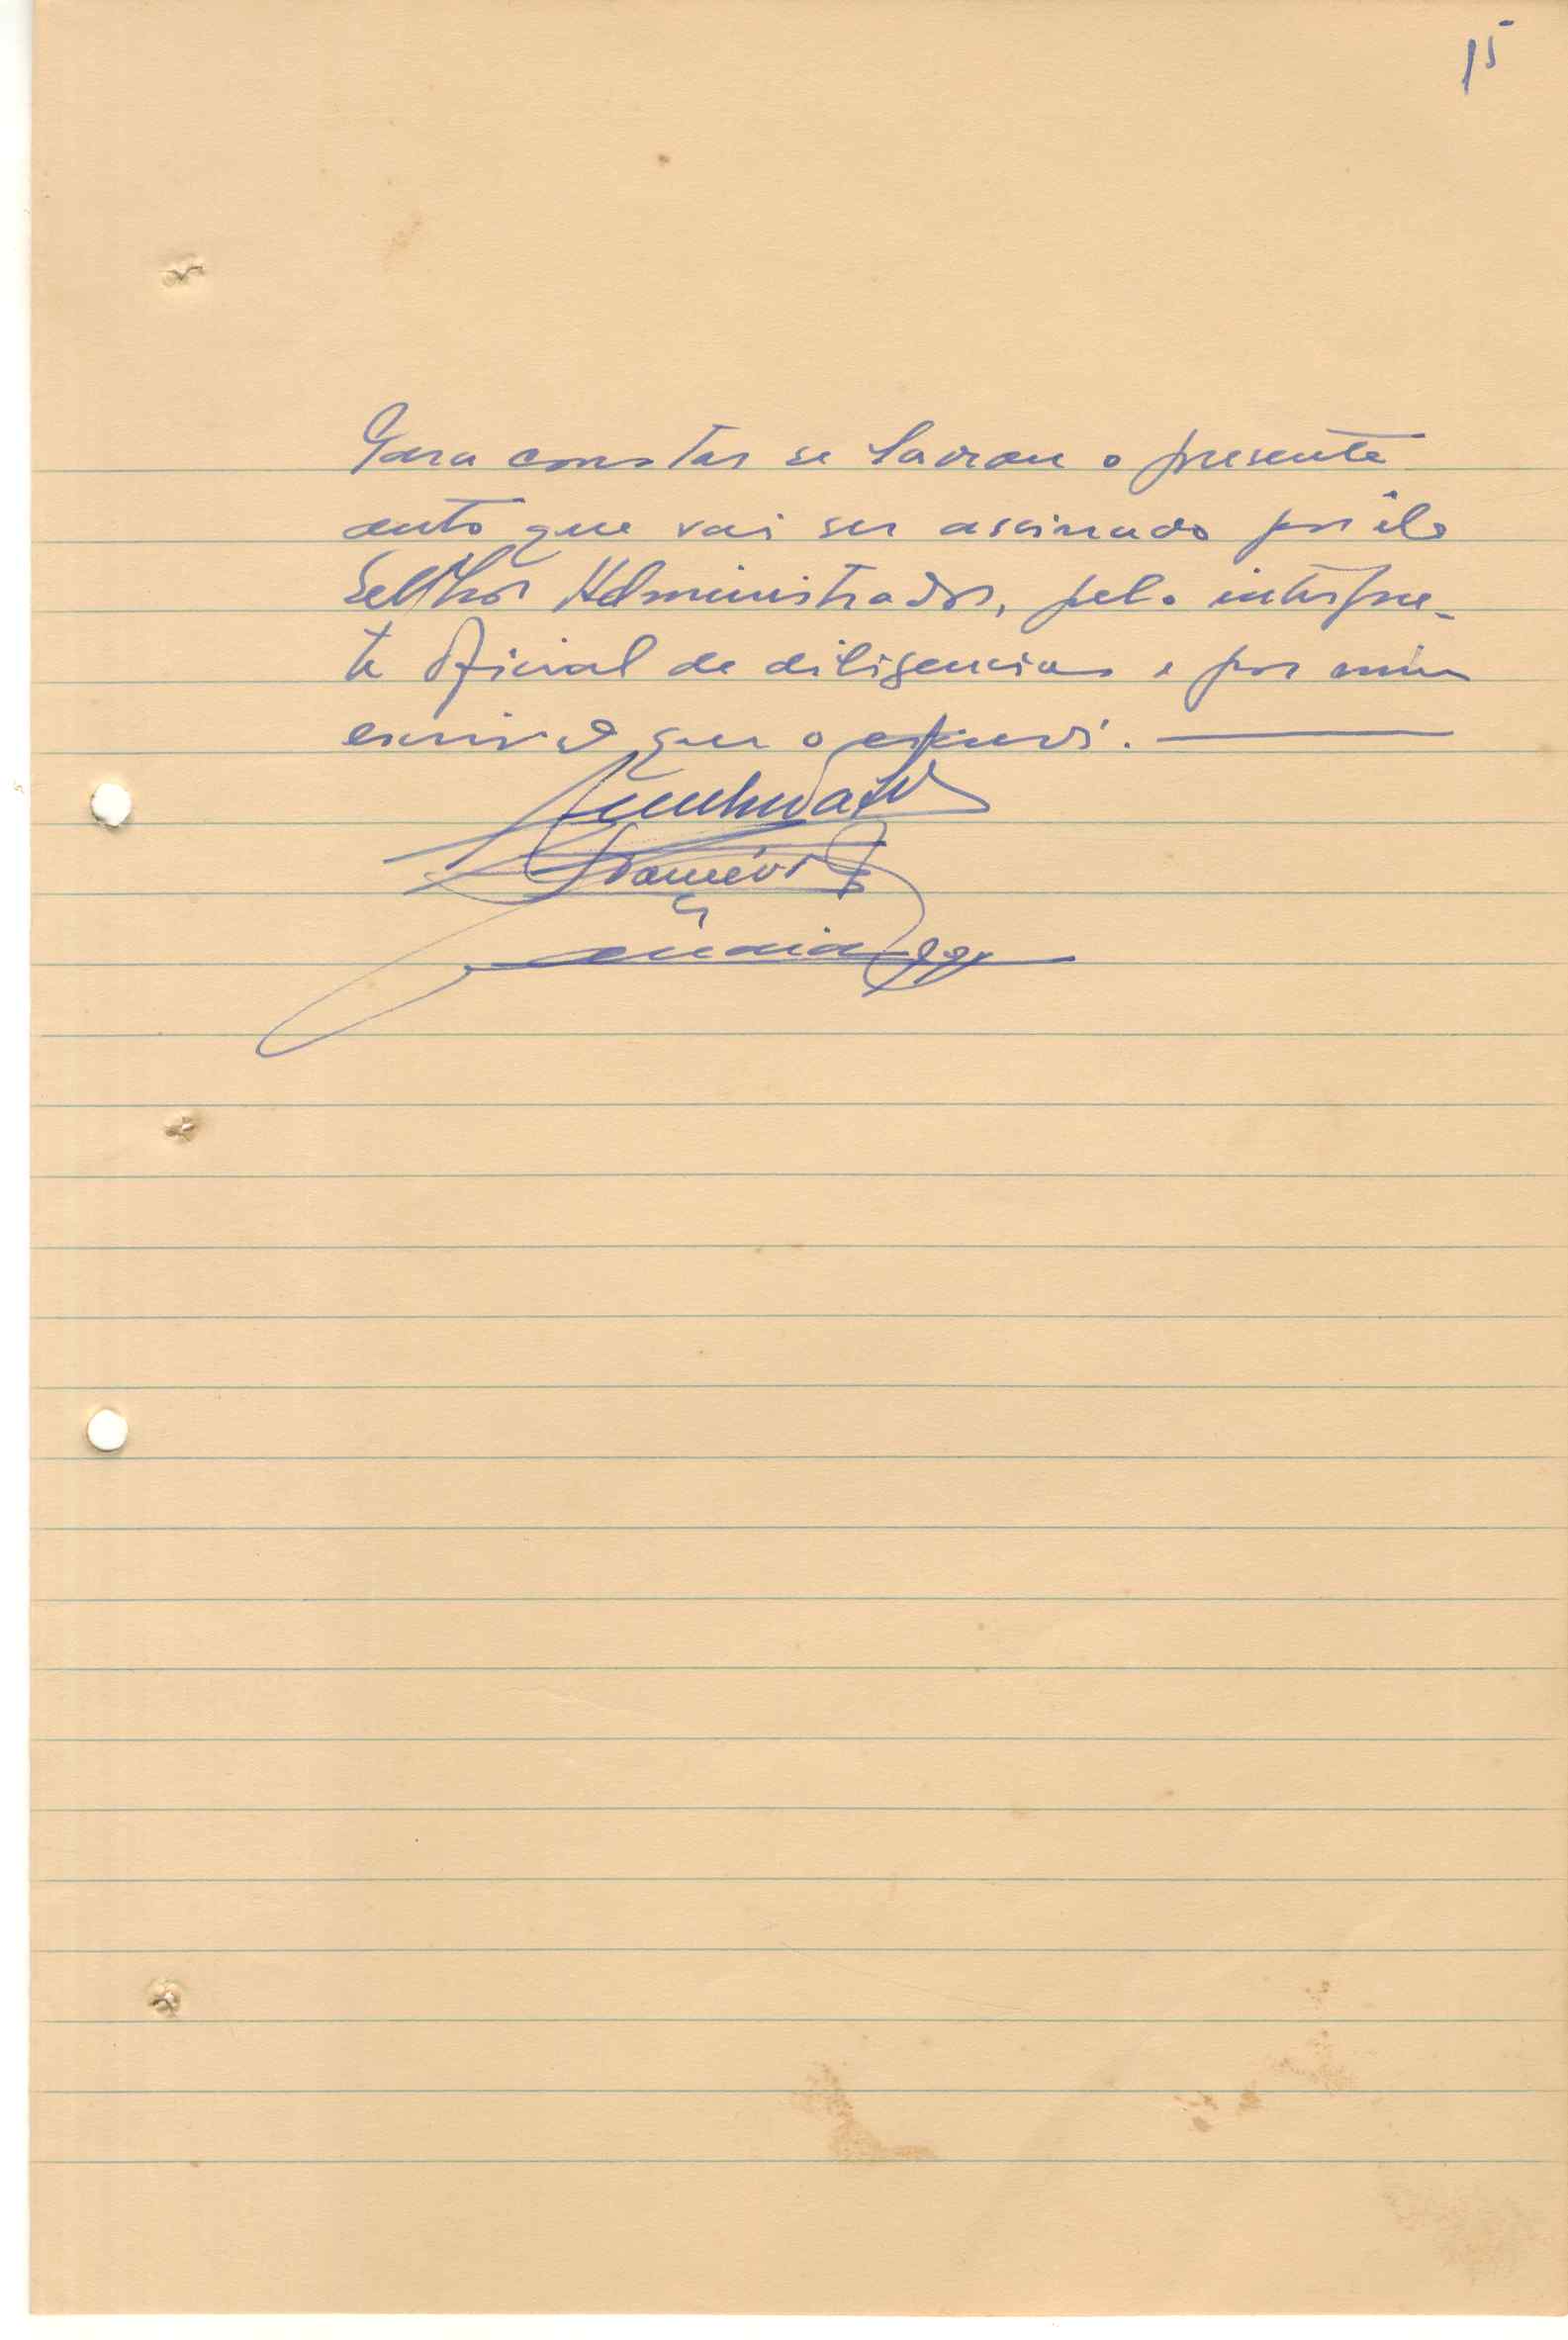 15
Para constar se lavrou o presente
auto que vai ser assinado por êle
Senhor Administrador, pelo interpre-
te oficial de diligencias e por mim
escrivão que o escrevi.